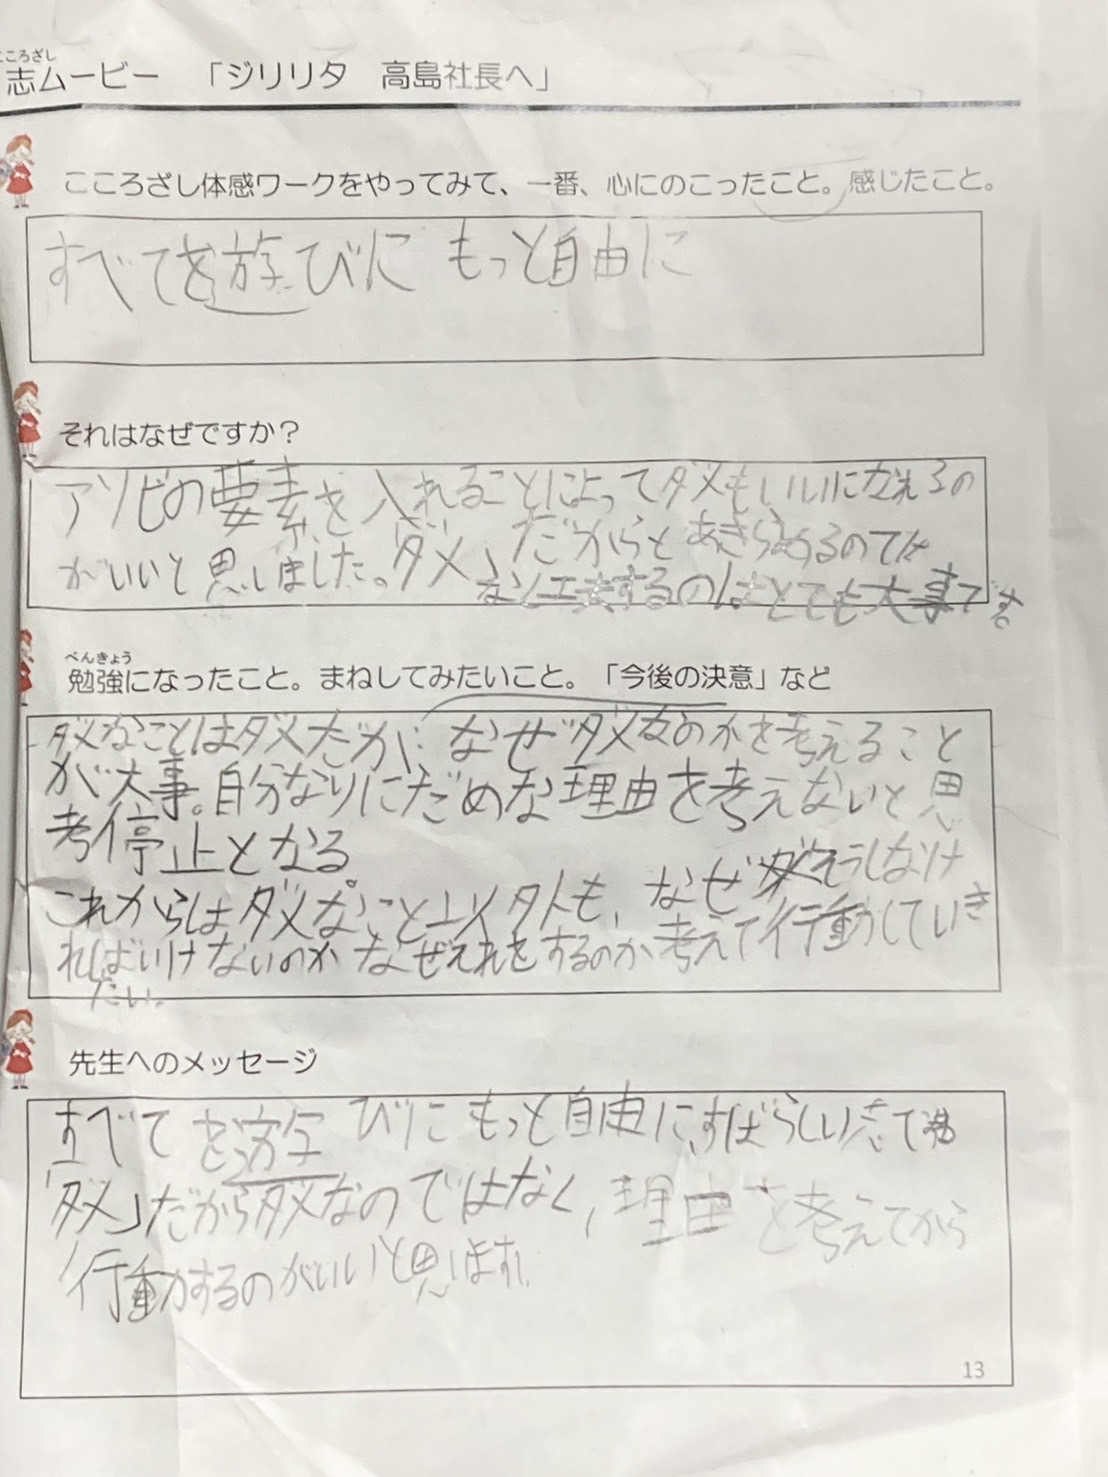 こころざし
志ムービー 「ジリリタ 高島社長へ」
こころざし体感ワークをやってみて、一番、心にのこったこと。感じたこと。
すべてを遊びに もっと自由に
それはなぜですか?
アソビの要素を入れることによってダメもいいに変れるの
がいいと思いました。「ダメ」だからとあきらめるのでは
なく工夫するのはとても大事です。
べんきょう
勉強になったこと。まねしてみたいこと。「今後の決意」など
ダメなことはダメだが、なぜダメなのかを考えること
が大事。自分なりにだめな理由を考えないと思
考停止となる。
これからはダメなこと以外も、なぜそうしなけ
ればいけないのかなぜそれをするのか考えて行動していき
たい。
先生へのメッセージ
すべてを遊びにもっと自由に、すばらしい志です
「ダメ」だからダメなのではなく、理由を考えてから
行動するのがいいと思います。
13